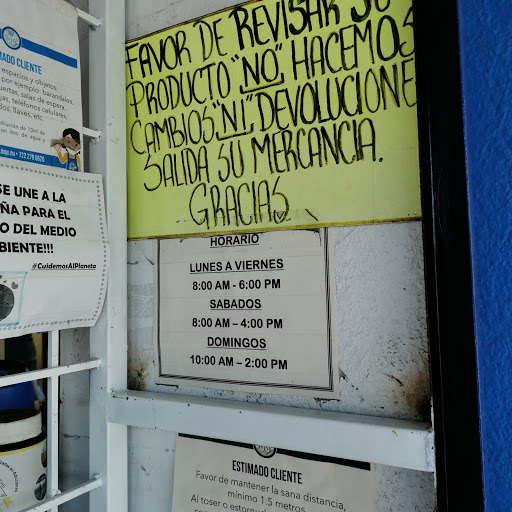 FAVOR DE REVISAR SU
PRODUCTO "NO" HACEMOS
CAMBIOS "NI" DEVOLUCIONE
SALIDA SU MERCANCIA.
GRACIAS
HORARIO
LUNES A VIERNES
8:00 AM - 6:00 PM
SABADOS
8:00 AM – 4:00 PM
DOMINGOS
10:00 AM – 2:00 PM
ESTIMADO CLIENTE
Favor de mantener la sana distancia,
mínimo 1.5 metros
Al toser o estornu
IMADO CLIENTE
espacios y objetos
por ejemplo: barandales,
uertas, salas de espera,
teléfonos celulares,
llaves, etc.
722 278 0620
SE UNE A LA
ÑA PARA EL
O DEL MEDIO
BIENTE!!!
#CuidemosAlPlaneta